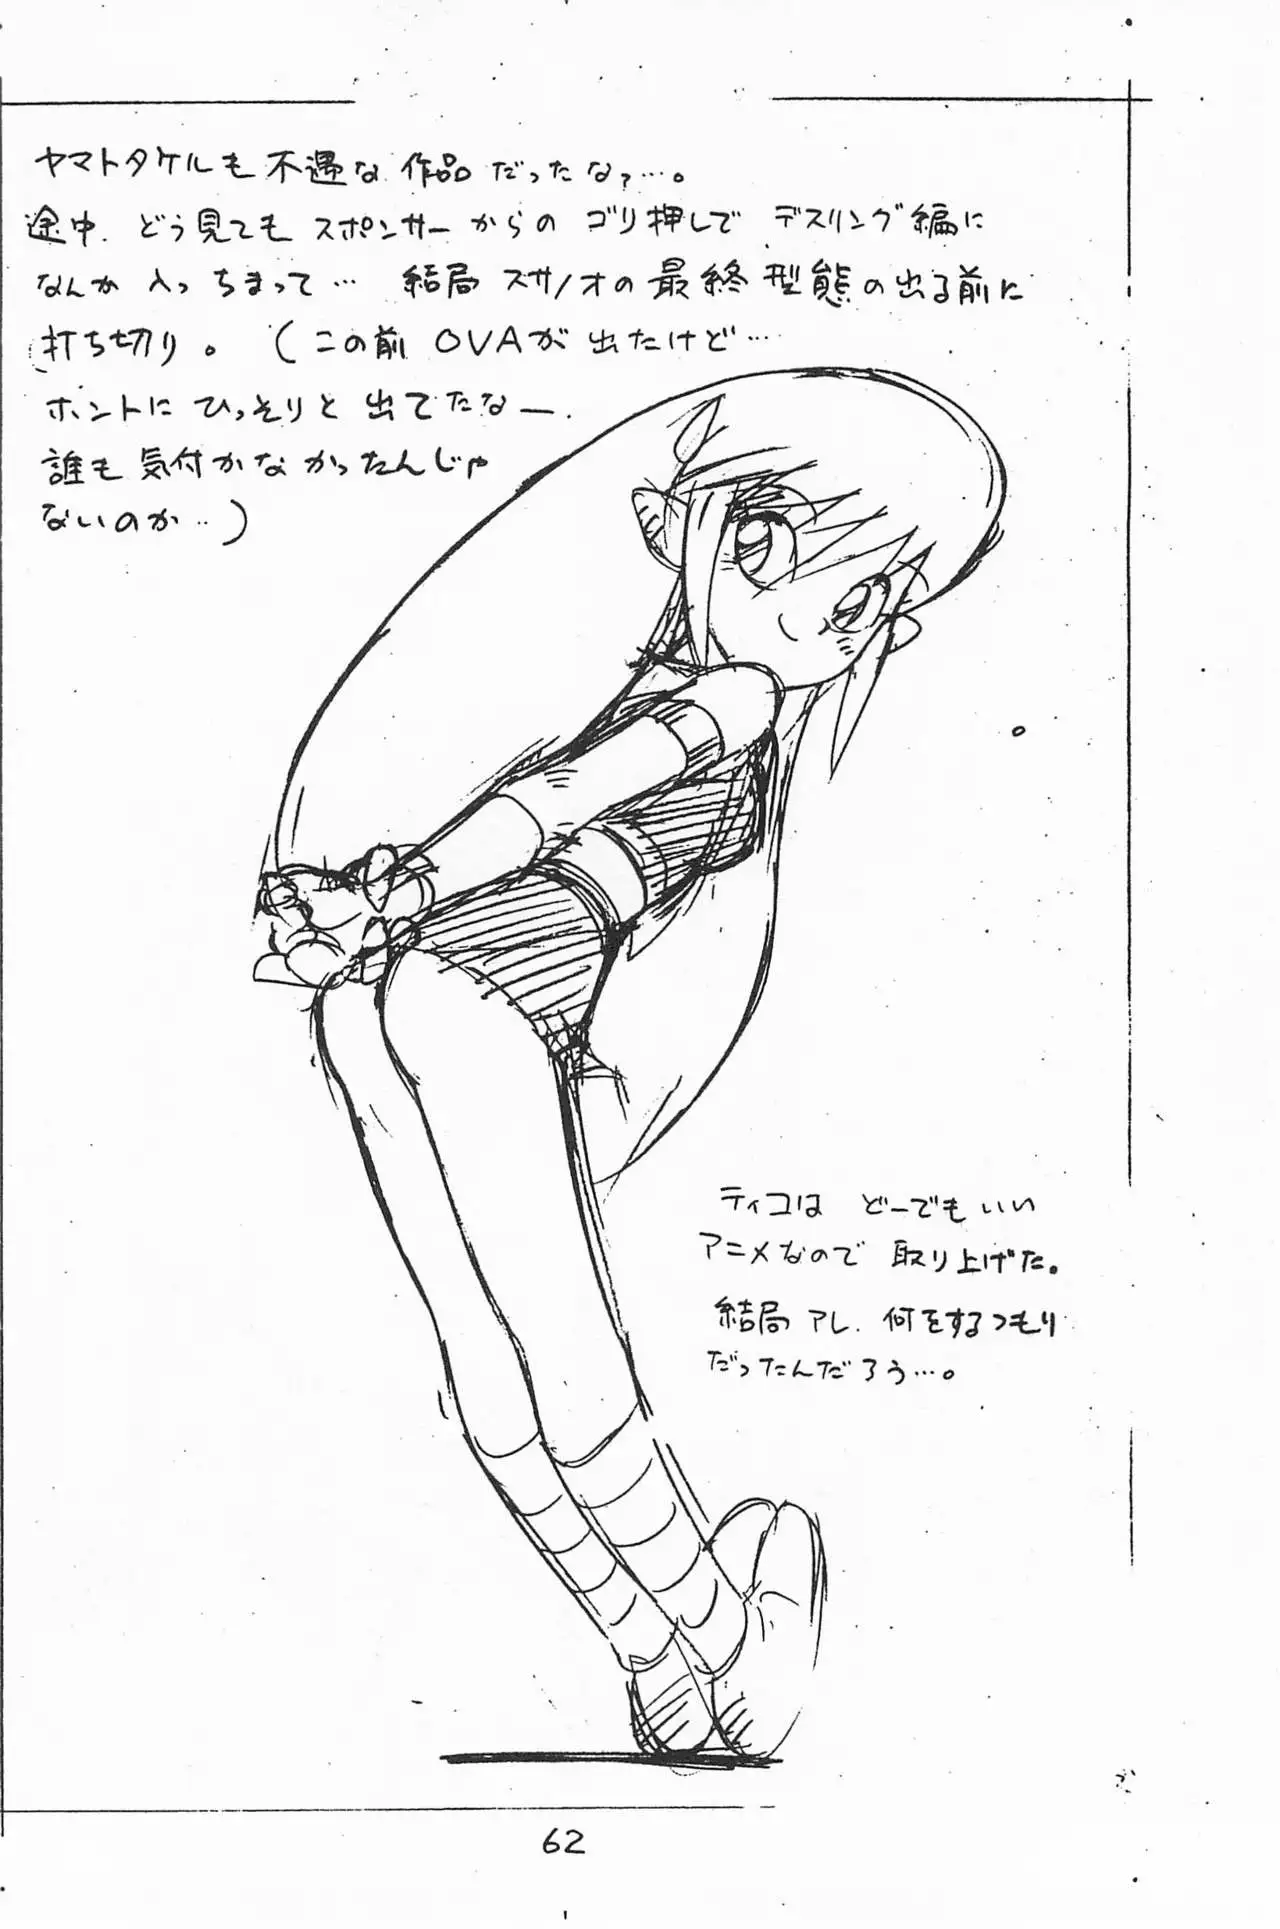 ヤマトタケルも不遇な作品だったなァ…。
途中.どう見てもスポンサーからのゴリ押しでデスリング編に
なんか入っちまって…結局スサノオの最終型態の出る前に
打ち切り。(この前OVAが出たけど…
ホントにひっそりと出てたなー.
誰も気付かなかったんじゃ
ないのか…)
ティコはどーでもいい
アニメなので取り上げた。
結局アレ.何をするつもり
だったんだろう…。
62